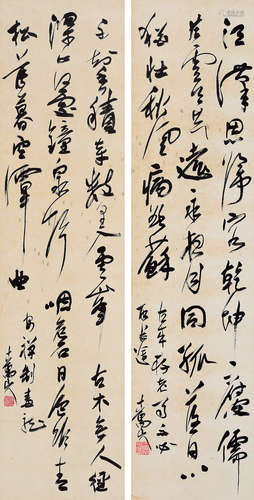 江漢思歸客乾坤一腐儒
片雲天共遠永夜月同孤落日心
猶壯秋風病欲蘇
古來存老馬不必
取長途
不知香積寺數里入雲峰古木無人徑
深山何處鐘泉聲咽危石日色冷青
松薄暮空潭曲
安禪制毒龍